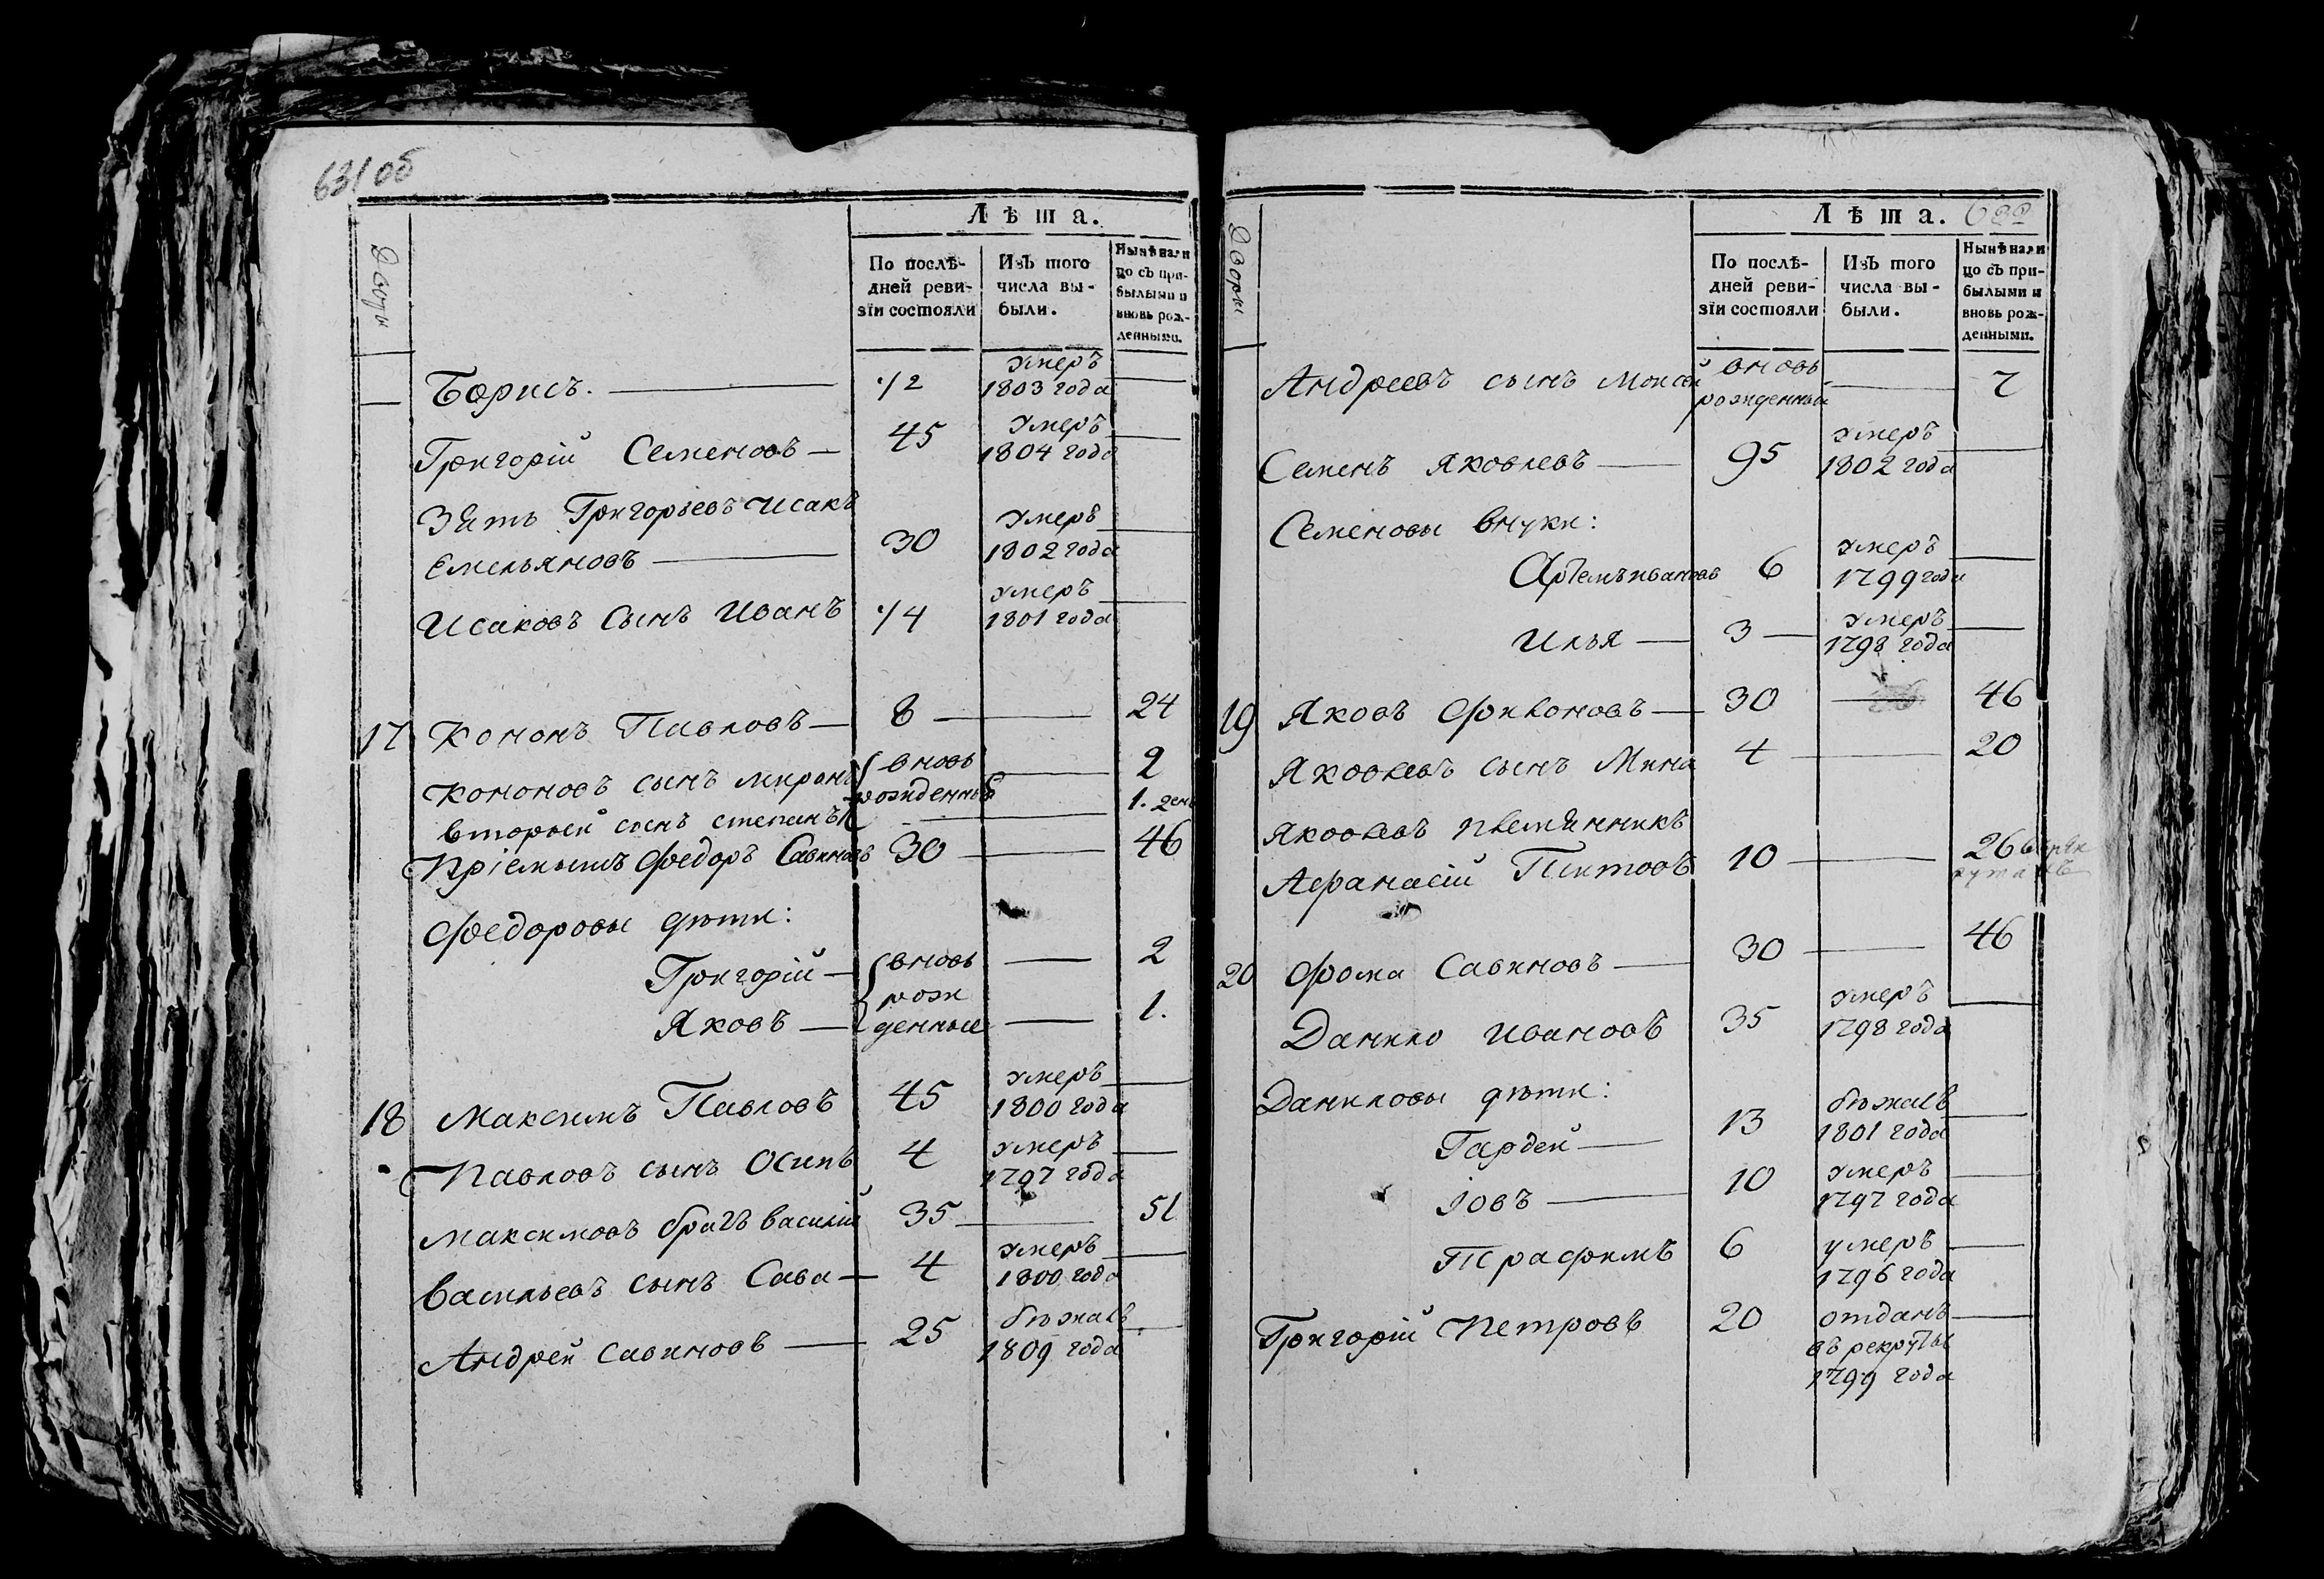 631 об
Лѣта.
Дворы
По послѣ-
дней реви-
зїи состояли
Изъ того
числа вы-
были.
Нынѣ нали
цо съ при-
былыми и
вновь рож-
денными.
Борисъ. — 1/2 умеръ 1803 года —
Григорій Семеновъ — 45 умеръ 1804 года —
Зять Григорьевъ Исакъ
Емельяновъ — 30 умеръ 1802 года —
Исаковъ сынъ Иванъ 1/4 умеръ 1801 года —
17 Кононъ Павловъ — 8 — 24
Кононовъ сынъ Миронъ вновь — 2
рожденныя
второй сынъ степанъ — 1. ден
Пріемышъ Федоръ Савиновъ 30 — 46
Федоровы дѣти:
Григорій — вновь — 2
рож
Яковъ — денные — 1.
18 Максимъ Павловъ 45 умеръ 1800 года —
Павловъ сынъ Осипъ 4 умеръ 1797 года —
Максимовъ братъ василій 35 — 51
васильевъ сынъ Сава — 4 умеръ 1800 года —
Андрей савиновъ — 25 бѣжалъ 1809 года —
Лѣта. 632
Дворы
По послѣ-
дней реви-
зїи состояли
Изъ того
числа вы-
были.
Нынѣ нали
цо съ при-
былыми и
вновь рож-
денными.
Андреевъ сынъ Моисей вновь рожденный — 7
Семенъ Яковлевъ — 95 умеръ 1802 года —
Семеновы внуки:
Артемъ ивановъ 6 умеръ 1799 года —
Илья — 3 — умеръ 1798 года —
19 Яковъ Филоновъ — 30 — 46
Яковлевъ сынъ Мина 4 — 20
Яковлевъ племянникъ
Афанасій Титовъ 10 — 26
20 Фома Савиновъ — 30 — 46
Данило Ивановъ 35 умеръ 1798 года —
Даниловы дѣти:
Гардей — 13 бѣжалъ 1801 года —
Іовъ — 10 умеръ 1797 года —
Трафимъ 6 умеръ 1796 года —
Григорій Петровъ 20 отданъ —
въ рекруты
1799 года